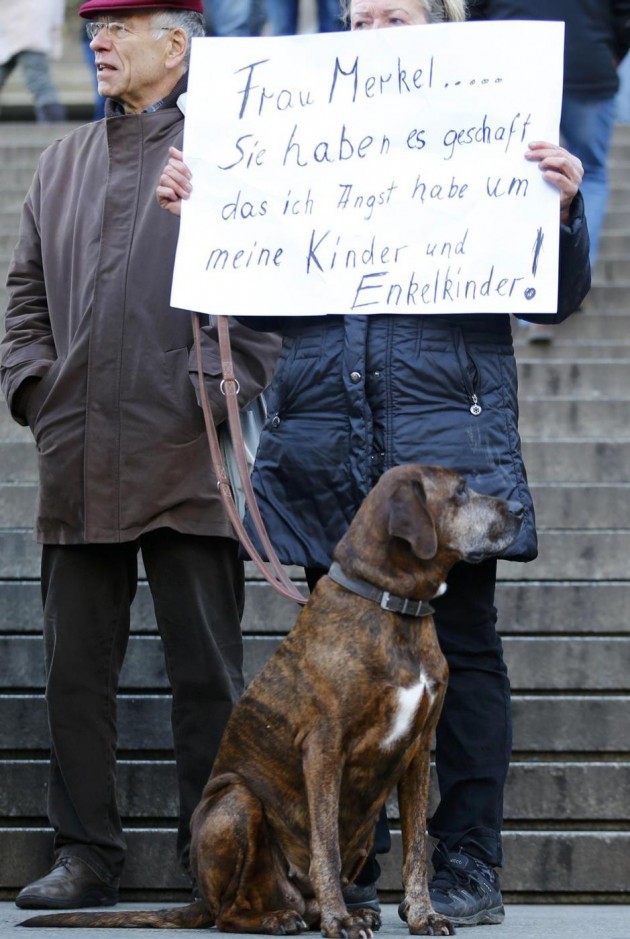 Frau Merkel.....
Sie haben es geschaft
das ich Angst habe um
meine Kinder und
Enkelkinder!